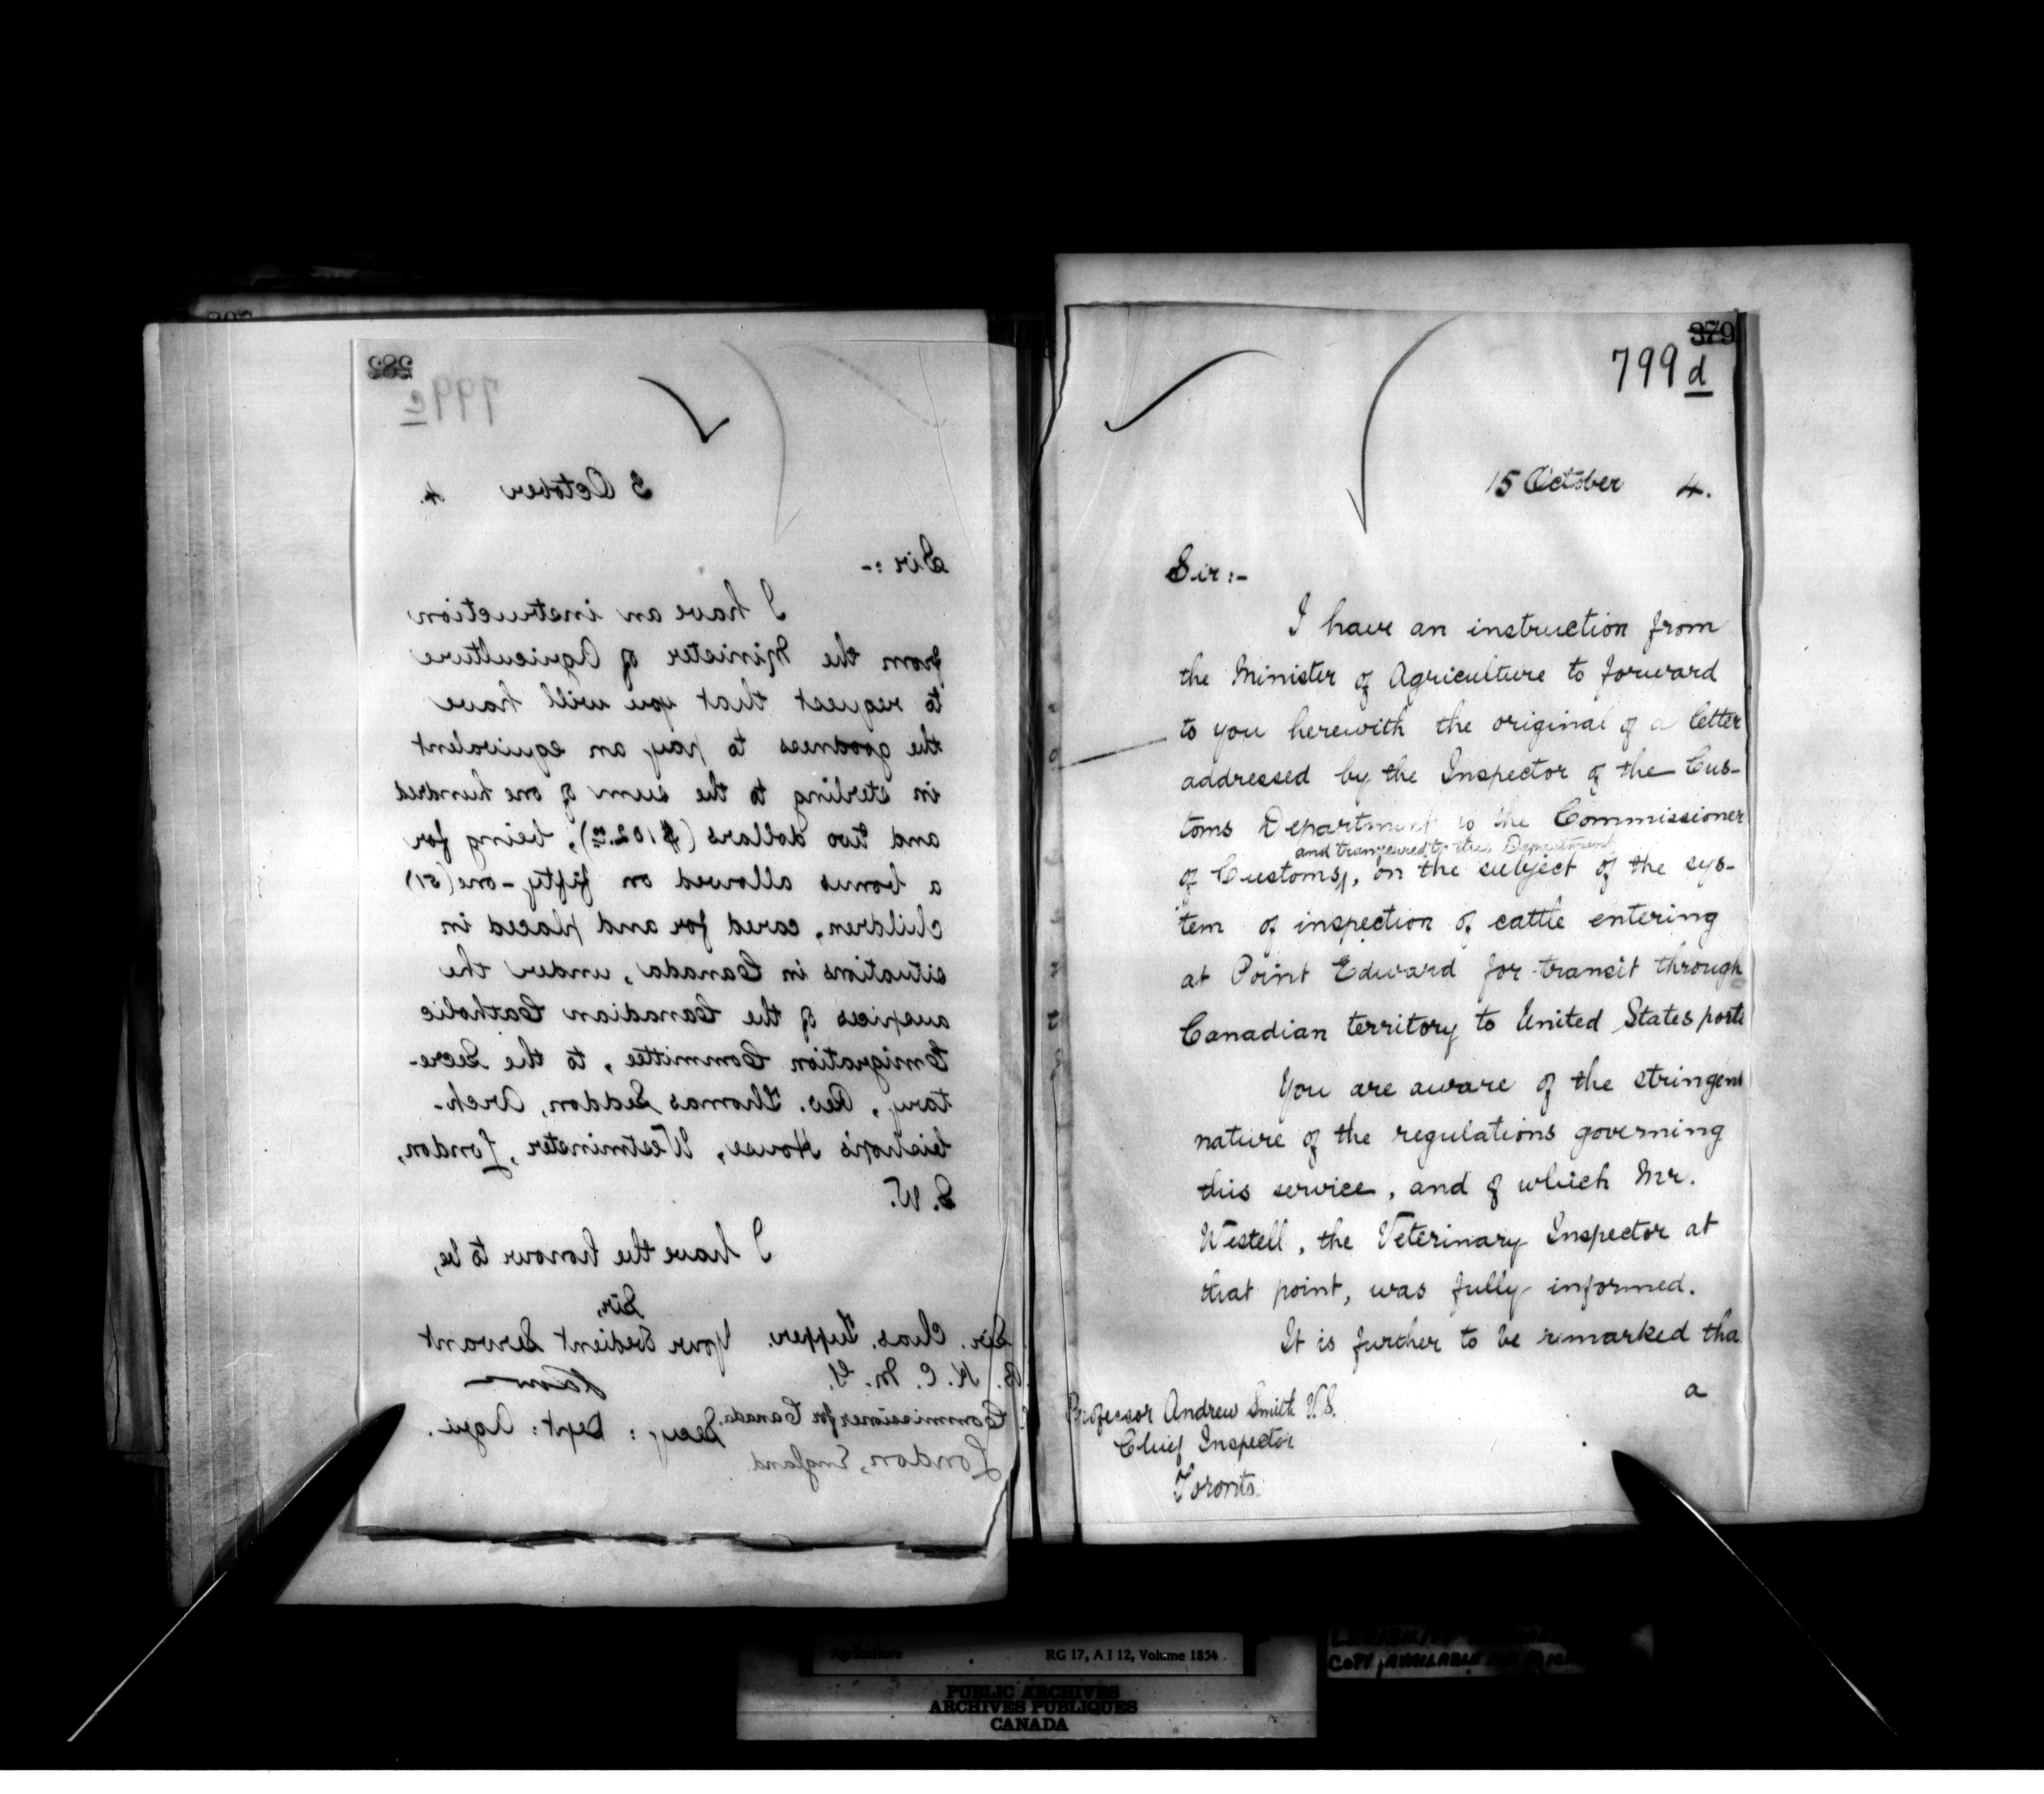 282
799c
3 October 4.
Sir :-
I have an instruction
from the Minister of Agriculture
to request that you will have
the goodness to pay an equivalent
in sterling to the sum of one hundred
and two dollars ($102.00), being for
a bonus allowed on fifty-one (51)
children, cared for and placed in
situations in Canada, under the
auspices of the Canadian Catholic
Emigration Committee, to the Secre-
tary, Rev. Thomas Seddon, Arch-
bishop's House, Westminster, London,
S. W.
I have the honour to be,
Sir,
Your obedient Servant
Sir. Chas. Tupper.
K. C. M. G.
Commissioner for Canada.
Secy : Dept : Agri.
London, England
379
799 d
15 October 4.
Sir :-
I have an instruction from
the Minister of Agriculture to forward
to you herewith the original of a letter
addressed by the Inspector of the Cus-
toms Department to the Commissioner
and transferred to this Department
of Customs, on the subject of the sys-
tem of inspection of cattle entering
at Point Edward for transit through
Canadian territory to United States ports
You are aware of the stringent
nature of the regulations governing
this service, and of which Mr.
Westell, the Veterinary Inspector at
that point, was fully informed.
It is further to be remarked tha
a
Professor Andrew Smith V.S.
Chief Inspector
Toronto.
Agriculture RG 17, A I 12, Volume 1854
PUBLIC ARCHIVES
ARCHIVES PUBLIQUES
CANADA
COPY AVAILABLE